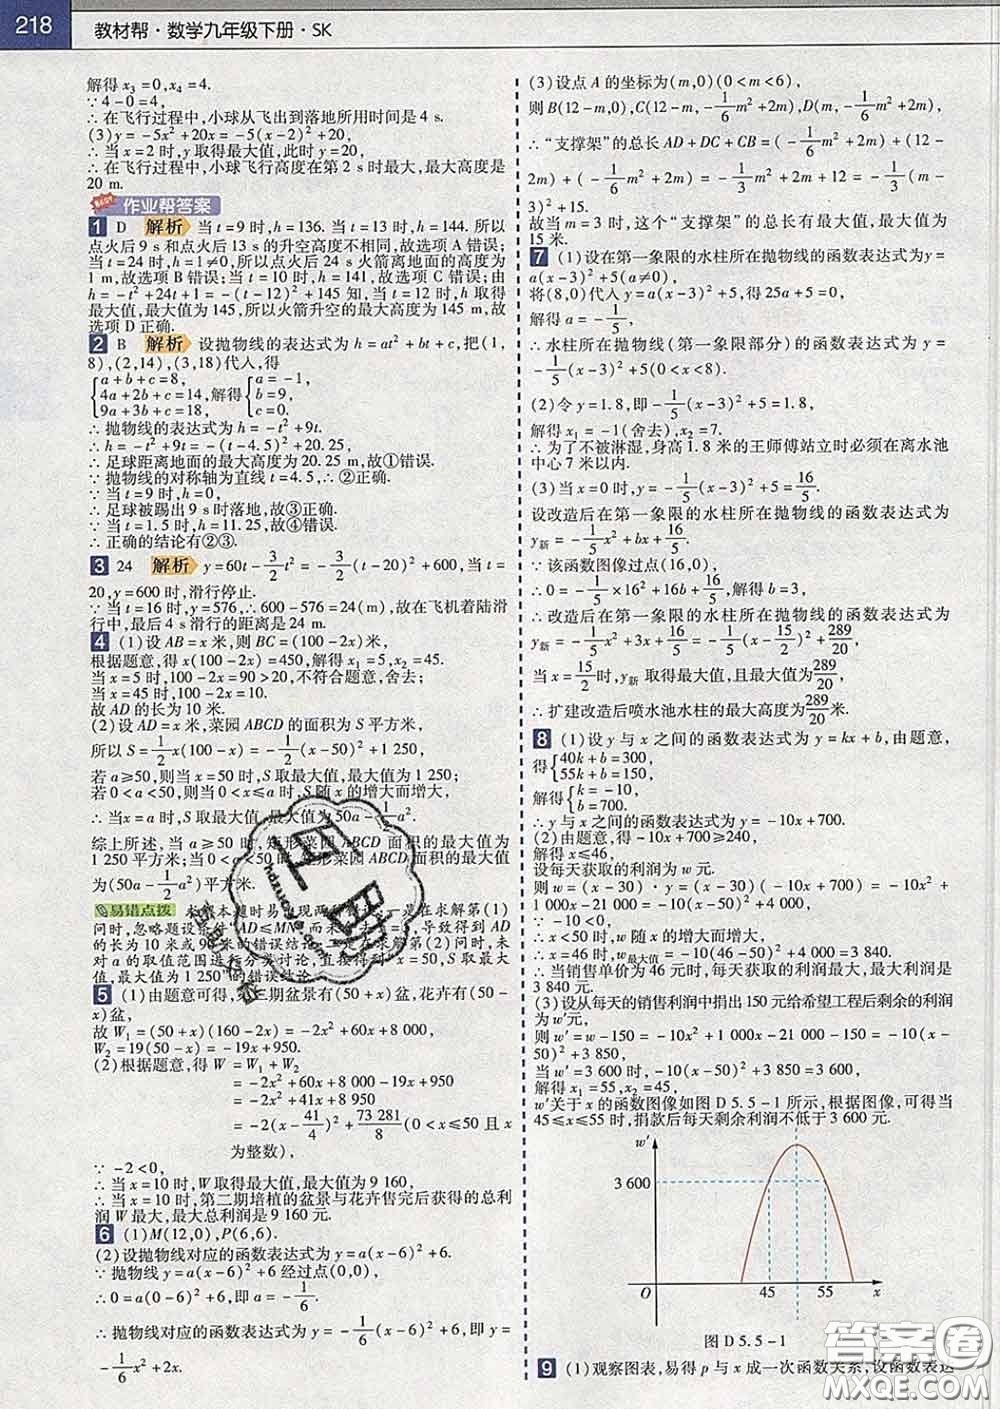 218 教材帮·数学九年级下册·SK
解得 x₃=0,x₄=4.
∵ 4-0=4,
∴ 在飞行过程中,小球从飞出到落地所用时间是 4 s.
(3)y=-5x²+20x=-5(x-2)²+20,
∴ 当 x=2 时,y 取得最大值,此时 y=20,
∴ 在飞行过程中,小球飞行高度在第 2 s 时最大,最大高度是
20 m.
作业帮答案
1 D 解析 当 t=9 时,h=136. 当 t=13 时,h=144. 所以
点火后 9 s 和点火后 13 s 的升空高度不相同,故选项 A 错误;
当 t=24 时,h=1≠0,所以点火后 24 s 火箭离地面的高度为
1 m,故选项 B 错误;当 t=10 时,h=141,故选项 C 错误;由
h=-t²+24t+1=-(t-12)²+145 知,当 t=12 时,h 取得
最大值,最大值为 145,所以火箭升空的最大高度为 145 m,故
选项 D 正确.
2 B 解析 设抛物线的表达式为 h=at²+bt+c,把(1,
8),(2,14),(3,18)代入,得
{a+b+c=8, 4a+2b+c=14, 9a+3b+c=18, 解得 {a=-1, b=9, c=0.
∴ 抛物线的表达式为 h=-t²+9t.
∴ h=-t²+9t=-(t-4.5)²+20.25,
∴ 足球距离地面的最大高度为 20.25 m,故①错误.
∵ 抛物线的对称轴为直线 t=4.5,∴ ②正确.
∵ 当 t=9 时,h=0,
∴ 足球被踢出 9 s 时落地,故③正确.
∵ 当 t=1.5 时,h=11.25,故④错误.
∴ 正确的结论有②③.
3 24 解析 y=60t-3/2t²=-3/2(t-20)²+600,当 t=
20,y=600 时,滑行停止.
∵ 当 t=16 时,y=576,∴ 600-576=24(m),故在飞机着陆滑
行中,最后 4 s 滑行的距离是 24 m.
4 (1)设 AB=x 米,则 BC=(100-2x)米,
根据题意,得 x(100-2x)=450,解得 x₁=5,x₂=45.
当 x=5 时,100-2x=90>20,不符合题意,舍去;
当 x=45 时,100-2x=10.
故 AD 的长为 10 米.
(2)设 AD=x 米,菜园 ABCD 的面积为 S 平方米,
所以 S=1/2x(100-x)=-1/2(x-50)²+1 250,
若 a≥50,则当 x=50 时,S 取最大值,最大值为 1 250;
若 0<a<50,则当 0<x≤a 时,S 随 x 的增大而增大,
∴ 当x=a 时,S 取最大值,最大值为 50a-1/2a².
综上所述,当 a≥50 时,矩形菜园 ABCD 面积的最大值为
1 250 平方米;当 0<a<50 时,矩形菜园 ABCD 面积的最大值
为(50a-1/2a²)平方米.
易错点拨 求解本题时易出现两种错误:一是在求解第(1)
问时,忽略题设条件 AD≤MN, 而未舍去 x=5,导致得到 AD
的长为 10 米或 90 米的错误结论;二是在求解第(2)问时,未
对 a 的取值范围进行分类讨论,直接得到“矩形菜园 ABCD 面积
值,最大值为 1 250”的错误结论.
5 (1)由题意可得,第二期盆景有(50+x)盆,花卉有(50-
x)盆,
故 W₁=(50+x)(160-2x)=-2x²+60x+8 000,
W₂=19(50-x)=-19x+950.
(2)根据题意,得 W=W₁+W₂
=-2x²+60x+8 000-19x+950
=-2x²+41x+8 950
=-2(x-41/4)²+73 281/8(0<x≤50 且 x
为整数),
∵ -2<0,
∴ 当 x=10 时,W 取得最大值,最大值为 9 160,
∴ 当 x=10 时,第二期培植的盆景与花卉售完后获得的总利
润 W 最大,最大总利润是 9 160 元.
6 (1)M(12,0),P(6,6).
(2)设抛物线对应的函数表达式为 y=a(x-6)²+6.
∵ 抛物线 y=a(x-6)²+6 经过点(0,0),
∴ 0=a(0-6)²+6,即 a=-1/6.
∴ 抛物线对应的函数表达式为 y=-1/6(x-6)²+6,即 y=
-1/6x²+2x.
(3)设点 A 的坐标为(m,0)(0<m<6),
则 B(12-m,0),C(12-m,-1/6m²+2m),D(m,-1/6m²+2m),
∴ “支撑架”的总长 AD+DC+CB=(-1/6m²+2m)+(12-
2m)+(-1/6m²+2m)=-1/3m²+2m+12=-1/3(m
-3)²+15.
故当 m=3 时,这个“支撑架”的总长有最大值,最大值为
15 米.
7 (1)设在第一象限的水柱所在抛物线的函数表达式为 y=
a(x-3)²+5(a≠0),
将(8,0)代入 y=a(x-3)²+5,得 25a+5=0,
解得 a=-1/5,
∴ 水柱所在抛物线(第一象限部分)的函数表达式为 y=
-1/5(x-3)²+5(0<x<8).
(2)令 y=1.8,即 -1/5(x-3)²+5=1.8,
解得 x₁=-1(舍去),x₂=7.
∴ 为了不被淋湿,身高 1.8 米的王师傅站立时必须在离水池
中心 7 米以内.
(3)当 x=0 时,y=-1/5(x-3)²+5=16/5,
设改造后在第一象限的水柱所在抛物线的函数表达式为
y新=-1/5x²+bx+16/5,
∵ 该函数图像过点(16,0),
∴ 0=-1/5×16²+16b+16/5,解得 b=3,
∴ 改造后在第一象限的水柱所在抛物线的函数表达式为
y新=-1/5x²+3x+16/5=-1/5(x-15/2)²+289/20,
当 x=15/2 时,y新 取得最大值,且最大值为289/20,
∴ 扩建改造后喷水池水柱的最大高度为289/20米.
8 (1)设 y 与 x 之间的函数表达式为 y=kx+b,由题意,
得{40k+b=300, 55k+b=150,
解得{k=-10, b=700.
∴ y 与 x 之间的函数表达式为 y=-10x+700.
(2)由题意,得 -10x+700≥240,
解得 x≤46,
设每天获取的利润为 w 元.
则 w=(x-30)·y=(x-30)(-10x+700)=-10x²+
1 000x-21 000=-10(x-50)²+4 000,
∵ -10<0,
∴ x<50 时,w 随 x 的增大而增大,
∴ x=46 时,w最大值=-10(46-50)²+4 000=3 840.
∴ 当销售单价为 46 元时,每天获取的利润最大,最大利润是
3 840 元.
(3)设从每天的销售利润中捐出 150 元给希望工程后剩余的利润
为 w′元,
则 w′=w-150=-10x²+1 000x-21 000-150=-10(x-
50)²+3 850,
当 w′=3 600 时,-10(x-50)²+3 850=3 600,
解得 x₁=55,x₂=45,
w′关于 x 的函数图像如图 D 5.5-1 所示,根据图像,可得当
45≤x≤55 时,捐款后每天剩余利润不低于 3 600 元.
w′
3 600
O 45 55 x
图 D 5.5-1
9 (1)观察图表,易得 p 与 x 成一次函数关系,设函数表达
答案圈
MXQE.COM